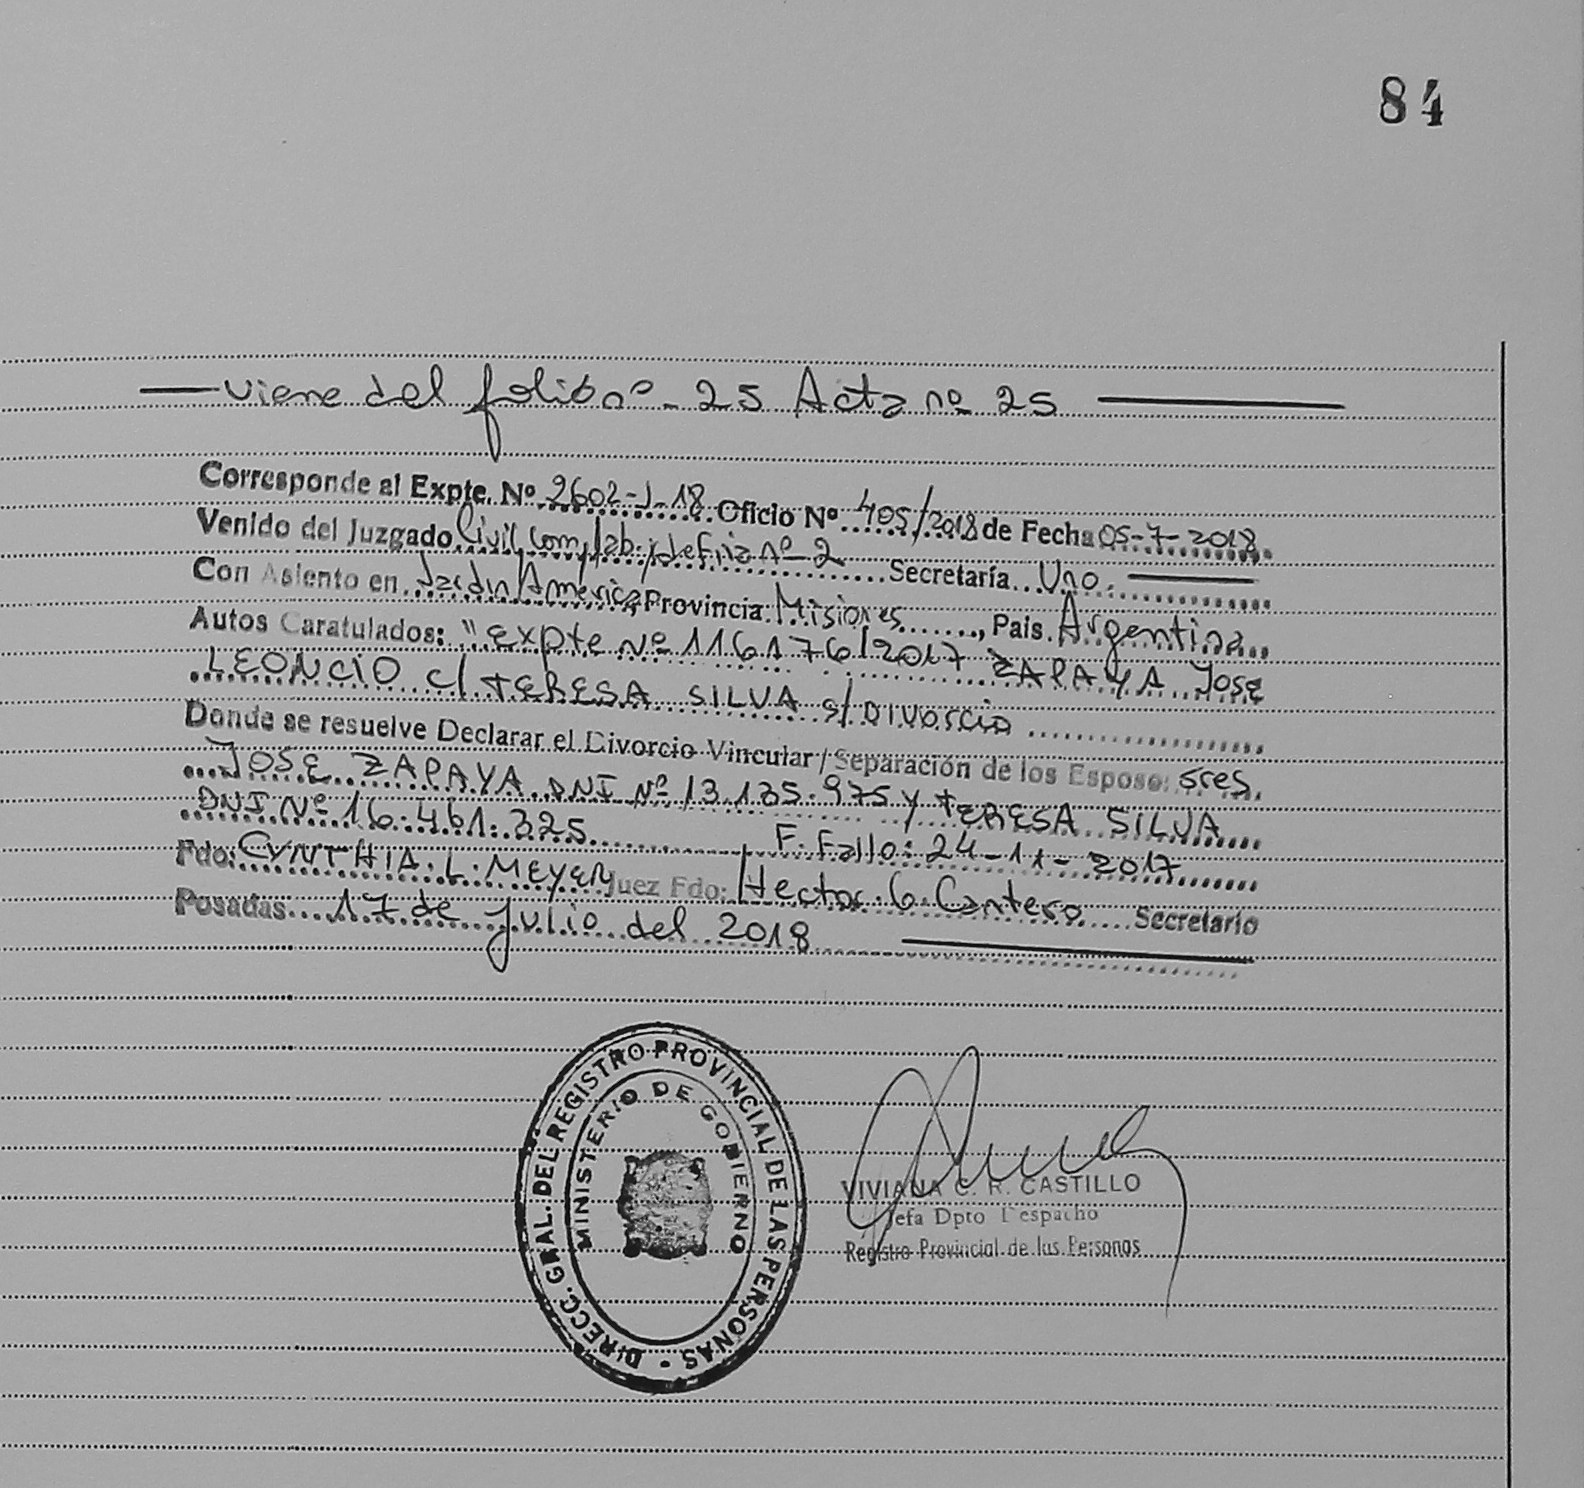 84
viene del folio nº 25 Acta nº 25
Corresponde al Expte. Nº 2602-J-18 Oficio Nº 405/2018 de Fecha 05-7-2018
Venido del Juzgado Civil, Com, Lab. y de Flia nº 2 Secretaría Uno.
Con Asiento en Jardin America, Provincia: Misiones, Pais Argentina
Autos Caratulados: "Expte Nº 116176/2017 ZAPAYA Jose
LEONCIO c/ TERESA SILVA s/ Divorcio
Donde se resuelve Declarar el Divorcio Vincular / Separación de los Esposo: sres.
JOSE ZAPAYA DNI Nº 13.135.975 y TERESA SILVA
DNI Nº 16.461.325 F. Fallo: 24-11-2017
Fdo: CYNTHIA. L. MEYER Juez Fdo: Hector G. Cantero Secretario
Posadas 17 de Julio del 2018
DIRECC. GRAL. DEL REGISTRO PROVINCIAL DE LAS PERSONAS -
MINISTERIO DE GOBIERNO
VIVIANA C. R. CASTILLO
Jefa Dpto Despacho
Registro Provincial de las Personas